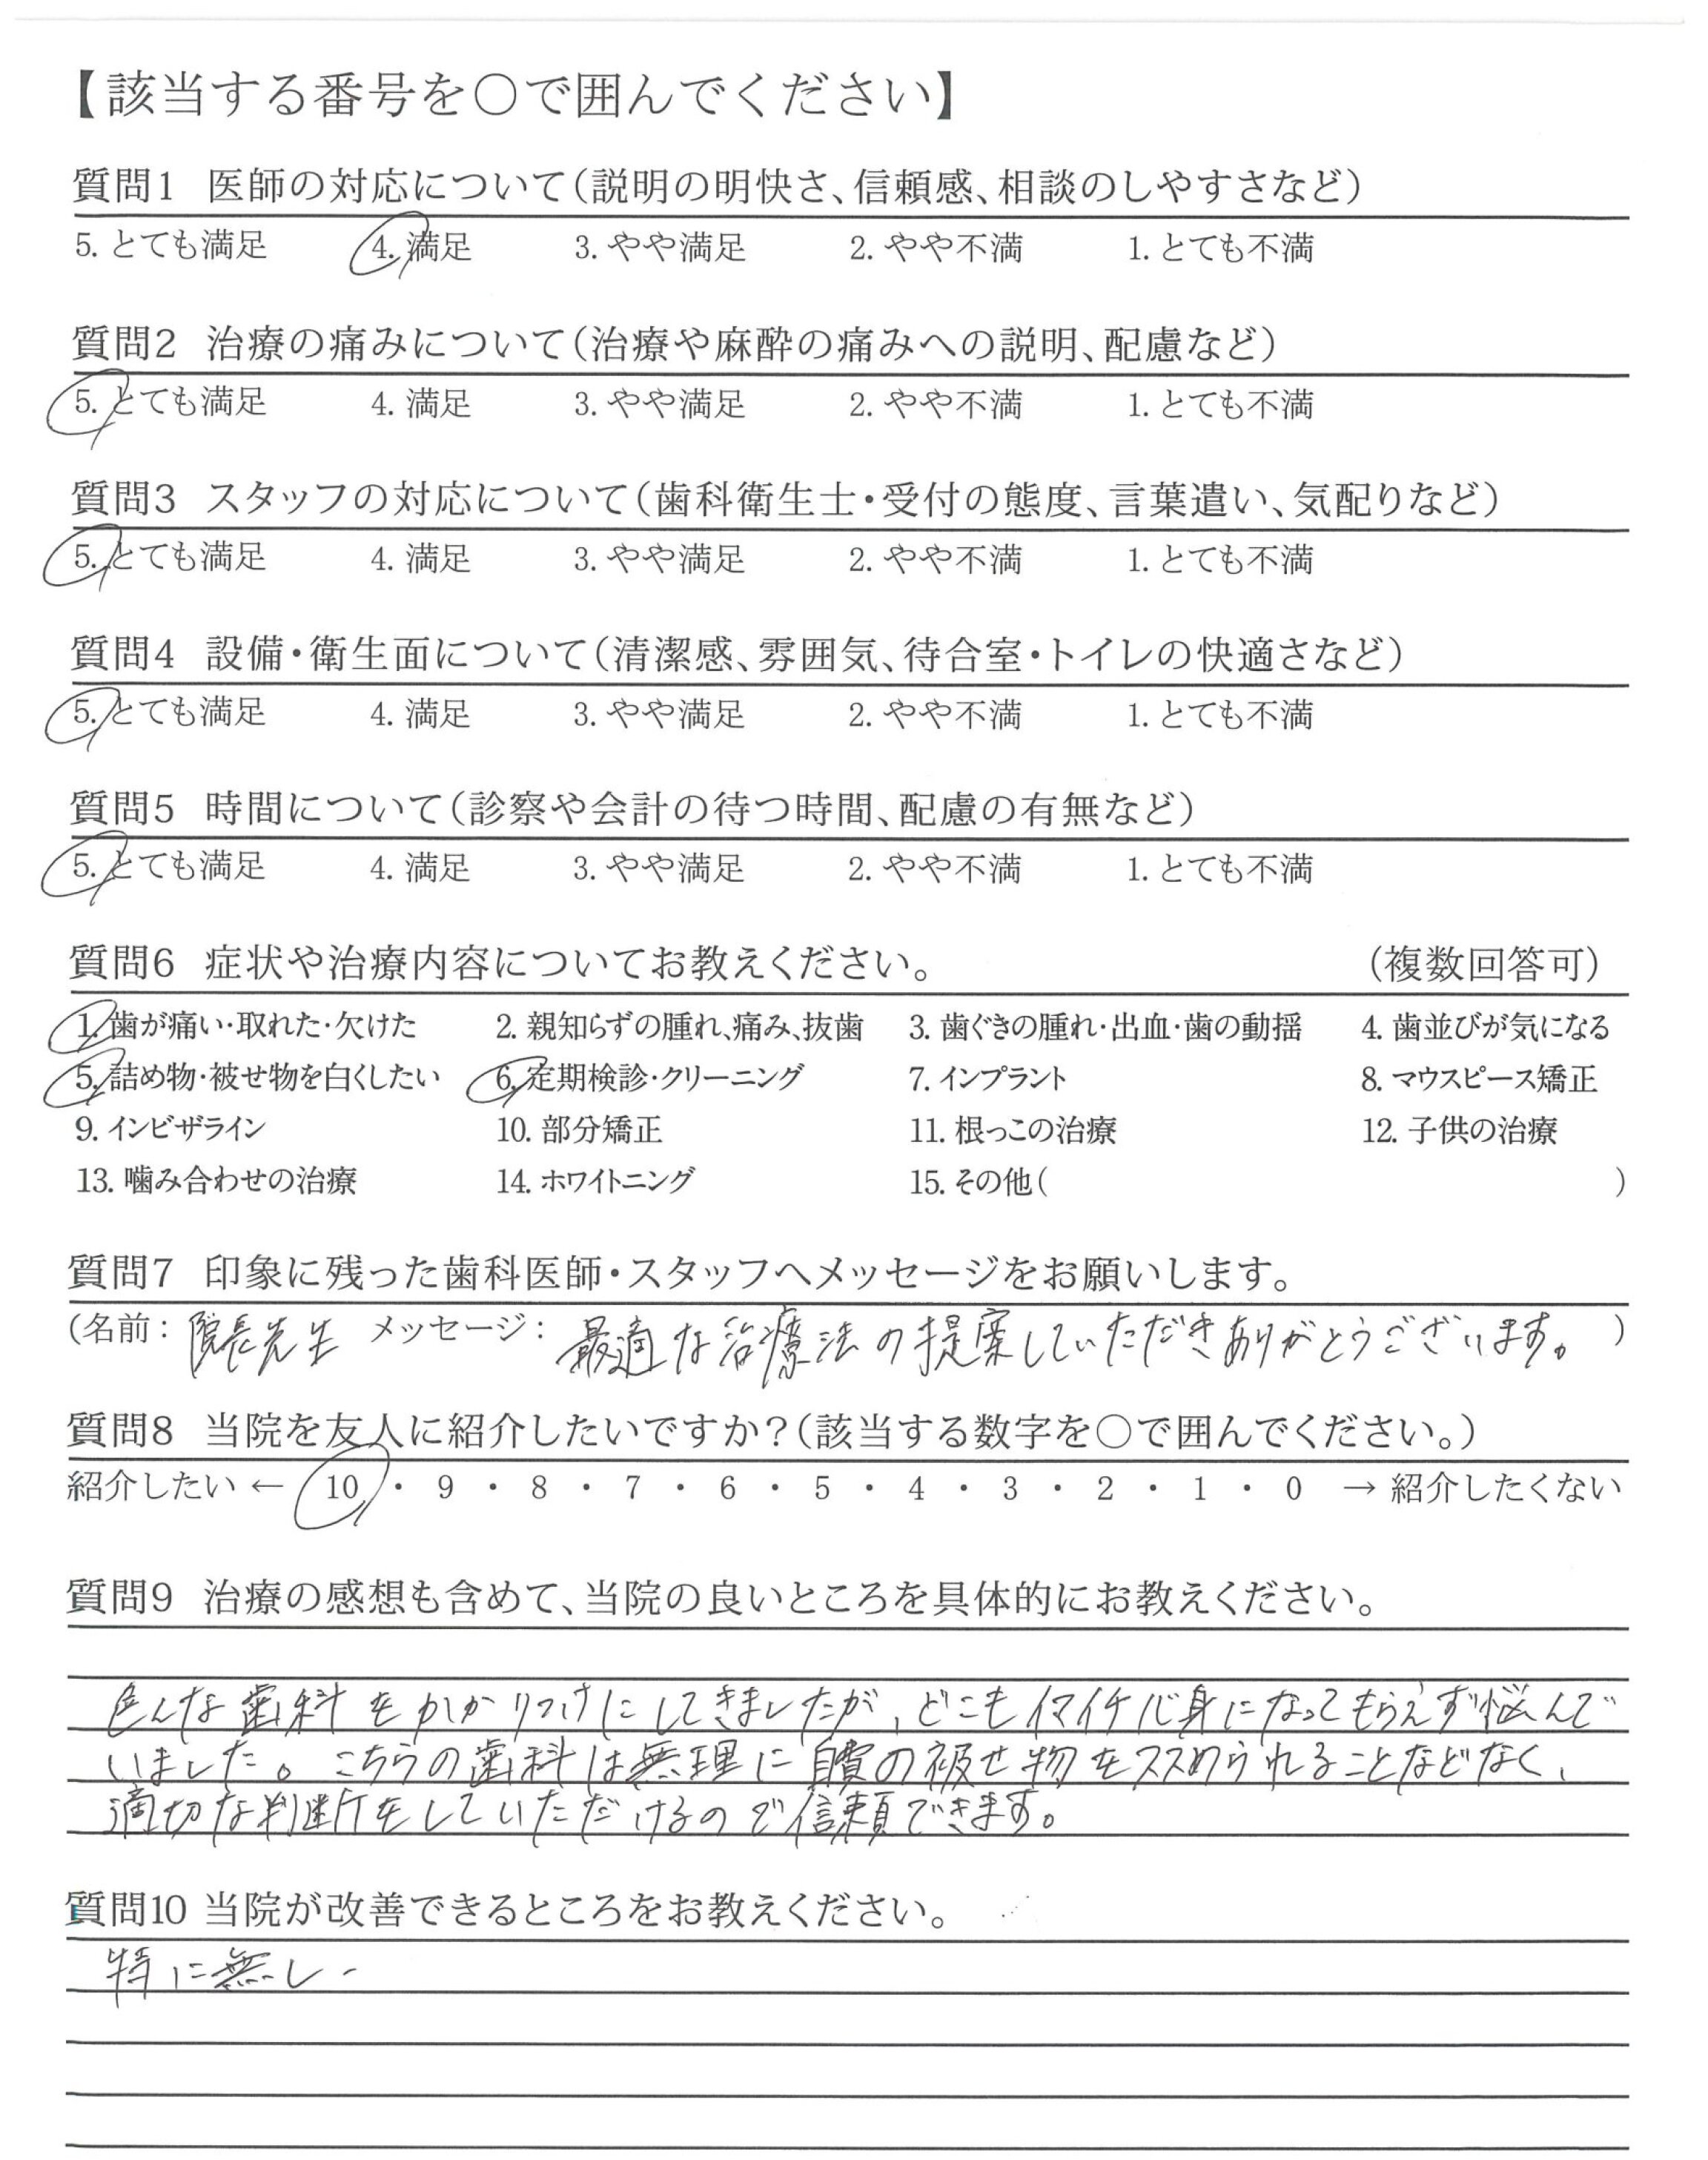 【該当する番号を○で囲んでください】
質問1 医師の対応について（説明の明快さ、信頼感、相談のしやすさなど）
5. とても満足 4. 満足 3. やや満足 2. やや不満 1. とても不満
質問2 治療の痛みについて（治療や麻酔の痛みへの説明、配慮など）
5. とても満足 4. 満足 3. やや満足 2. やや不満 1. とても不満
質問3 スタッフの対応について（歯科衛生士・受付の態度、言葉遣い、気配りなど）
5. とても満足 4. 満足 3. やや満足 2. やや不満 1. とても不満
質問4 設備・衛生面について（清潔感、雰囲気、待合室・トイレの快適さなど）
5. とても満足 4. 満足 3. やや満足 2. やや不満 1. とても不満
質問5 時間について（診察や会計の待つ時間、配慮の有無など）
5. とても満足 4. 満足 3. やや満足 2. やや不満 1. とても不満
質問6 症状や治療内容についてお教えください。 （複数回答可）
1. 歯が痛い・取れた・欠けた 2. 親知らずの腫れ、痛み、抜歯 3. 歯ぐきの腫れ・出血・歯の動揺 4. 歯並びが気になる
5. 詰め物・被せ物を白くしたい 6. 定期検診・クリーニング 7. インプラント 8. マウスピース矯正
9. インビザライン 10. 部分矯正 11. 根っこの治療 12. 子供の治療
13. 噛み合わせの治療 14. ホワイトニング 15. その他（ ）
質問7 印象に残った歯科医師・スタッフへメッセージをお願いします。
（名前： 院長先生 メッセージ： 最適な治療法の提案していただきありがとうございます。 ）
質問8 当院を友人に紹介したいですか？（該当する数字を○で囲んでください。）
紹介したい ← 10 ・ 9 ・ 8 ・ 7 ・ 6 ・ 5 ・ 4 ・ 3 ・ 2 ・ 1 ・ 0 → 紹介したくない
質問9 治療の感想も含めて、当院の良いところを具体的にお教えください。
色んな歯科をかかりつけにしてきましたが、どこもイマイチ心身になってもらえず悩んで
いました。こちらの歯科は無理に自費の被せ物をススめられることなどなく、
適切な判断をしていただけるので信頼できます。
質問10 当院が改善できるところをお教えください。
特に無し